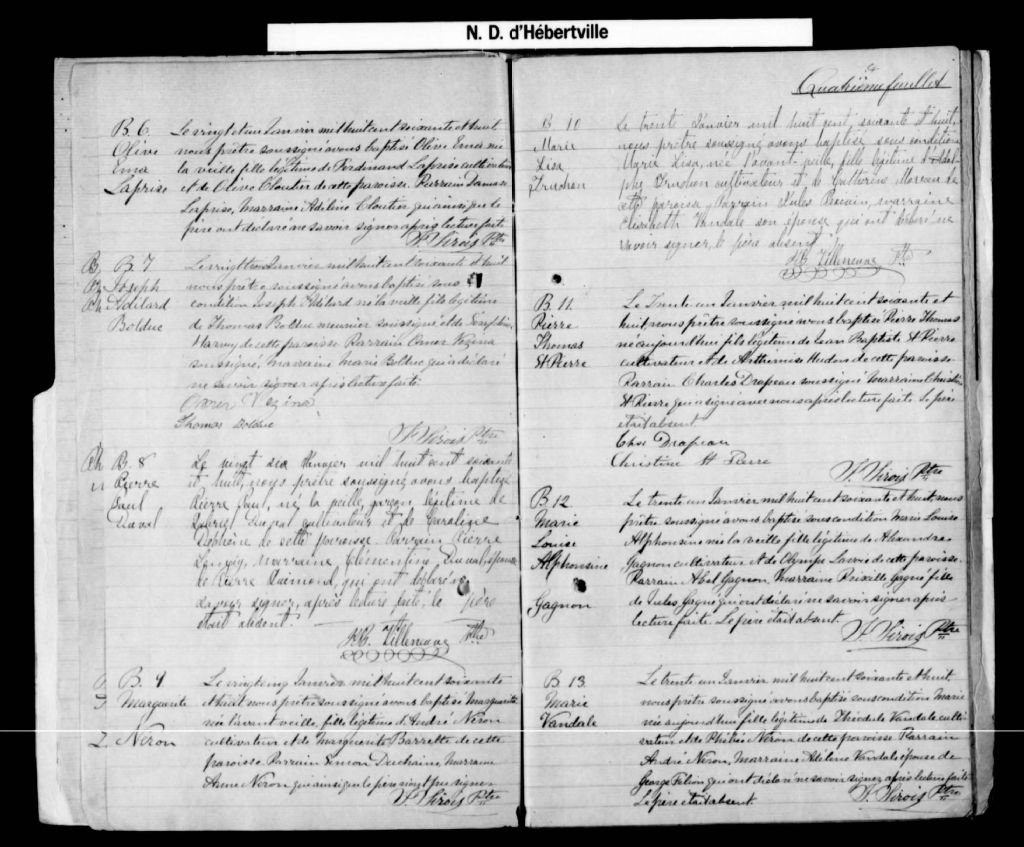 N. D. d'Hébertville
B. 6.
Olive
Ema
Laprise
Le vingt et un Janvier mil huit cent soixante et huit
nous prêtre soussigné avons baptisé Olive Ema née
la veille fille légitime de Ferdinand Laprise cultivateur
et de Olive Cloutier de cette paroisse. Parrain Damase
Laprise, Marraine Adéline Cloutier qui ainsi que le
père ont déclaré ne savoir signer après lecture faite.
F. Sirois Ptre
B. 7
Joseph
Adélard
Bolduc
Le vingt trois Janvier mil huit cent soixante et huit
nous prêtre soussigné avons baptisé sous
condition Joseph Adélard né la veille fils légitime
de Thomas Bolduc meunier soussigné et de
de cette paroisse Parrain Omer Vezina
soussigné, marraine Marie Bolduc qui a déclaré
ne savoir signer après lecture faite.
Omer Vezina
Thomas Bolduc
F. Sirois Ptre
B. 8
Pierre
Paul
Duval
Le vingt six Janvier mil huit cent soixante
et huit, nous prêtre soussigné avons baptisé
Pierre Paul, né la veille, garçon légitime de
Duval cultivateur et de Caroline
de cette paroisse. Parrain Pierre
marraine, Clémentine Duval, épouse
de Pierre Raimond, qui ont déclaré ne
savoir signer, après lecture faite, le père
était absent.
J.B. Villeneuve Ptre
B. 9.
Marguerite
Néron
Le vingt cinq Janvier mil huit cent soixante
et huit nous prêtre soussigné avons baptisé Marguerite
née l'avant veille, fille légitime d'André Néron
cultivateur et de Marguerite Barrette de cette
paroisse. Parrain Duchaine, Marraine
Anne Néron qui ainsi que le père n'ont pu signer
F. Sirois Ptre
Quatrième feuillet
B 10
Marie
Lisa
Truchon
Le trente Janvier mil huit cent soixante et huit,
nous prêtre soussigné avons baptisé sous condition
Marie Lisa, née l'avant-veille, fille légitime d'Adol-
phe Truchon cultivateur et de Catherine Moreau de
cette paroisse. Parrain Jules marraine
Elisabeth Vandale son épouse qui ont déclaré ne
savoir signer, le père absent
J.B. Villeneuve Ptre
B. 11.
Pierre
Thomas
St Pierre
Le Trente un Janvier mil huit cent soixante et
huit nous prêtre soussigné avons baptisé Pierre Thomas
né aujourd'hui fils légitime de Jean Baptiste St Pierre
cultivateur et de Arthémise Hudon de cette paroisse
Parrain Charles Drapeau soussigné Marraine Christine
St Pierre qui a signé avec nous après lecture faite. Le père
était absent.
Chs Drapeau
Christine St Pierre
F. Sirois Ptre
B 12
Marie
Louise
Alphonsine
Gagnon
Le trente un Janvier mil huit cent soixante et huit nous
prêtre soussigné avons baptisé sous condition Marie Louise
Alphonsine née la veille fille légitime de Alexandre
Gagnon cultivateur et de Olympe Lavoie de cette paroisse.
Parrain Abel Gagnon, Marraine Prixille Gagné fille
de Jules Gagné qui ont déclaré ne savoir signer après
lecture faite. Le père était absent.
F. Sirois Ptre
B 13
Marie
Vandale
Le trente un Janvier mil huit cent soixante et huit
nous prêtre soussigné avons baptisé sous condition Marie
née aujourd'hui fille légitime de Théodule Vandale culti-
vateur et de Phébée Néron de cette paroisse Parrain
André Néron, Marraine Adéline Vandale épouse de
George qui ont déclaré ne savoir signer après lecture faite
Le père était absent.
F. Sirois Ptre